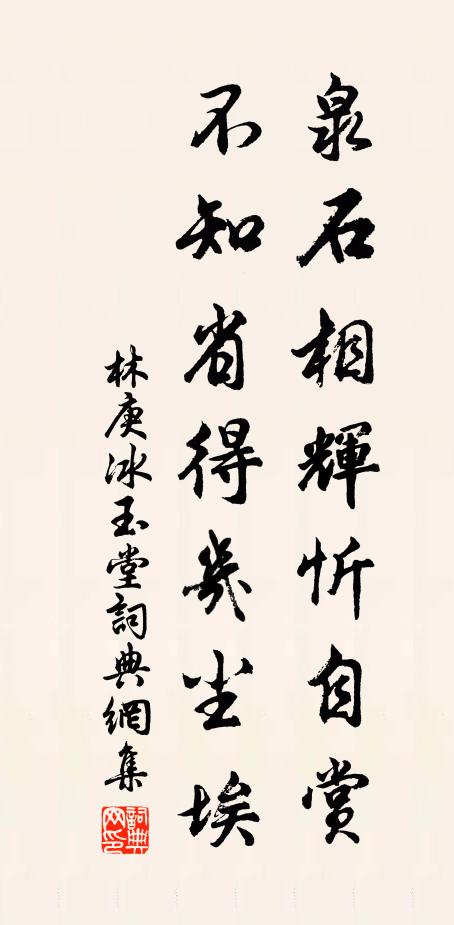 泉石相輝忻自賞
不知省得幾塵埃
林庚冰玉堂詞典網集
詞典网印